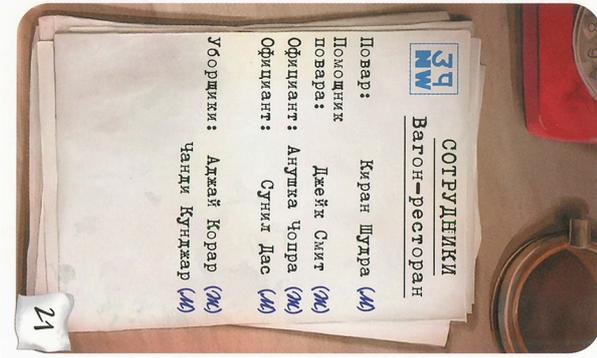 34
NW
СОТРУДНИКИ
Вагон-ресторан
Повар: Киран Шудра (М)
Помощник
повара: Джейк Смит (Ж)
Официант: Анушка Чопра (Ж)
Официант: Сунил Дас (М)
Уборщики: Аджай Корар (Ж)
Чанди Кунджар (М)
21